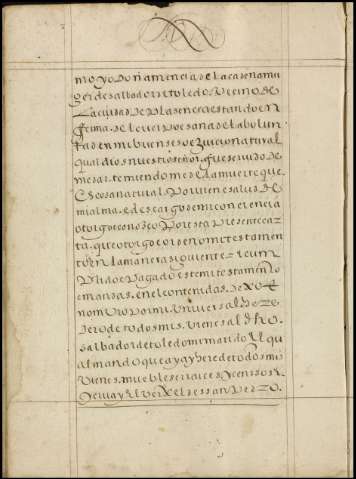 mo yo Doña mencia de la cadena mu
ger de salbador de toledo Vecino de
La ciudad de Plasencia estando en
ferma de cuerpo e sana de la bolun
tad en mi buen seso e juicio natural
qual dios nuestro señor fue servido de
me dar temiendome de la muerte que
Es cosa natural Por bien e salud de
mi alma e descargo de mi conciencia
otorgo e conosco Por esta Presente car
ta que otorgo e ordeno mi testamen
to en la manera siguiente e cum
Plido e Pagado este mi testamento
e mandas en el contenidas Dexo e
nombro Por mi Universal he re
dero de todos mis vienes al dho
salbador de toledo mi marido El qu
al mando que aya y herede todos mis
vienes muebles e raices y censos